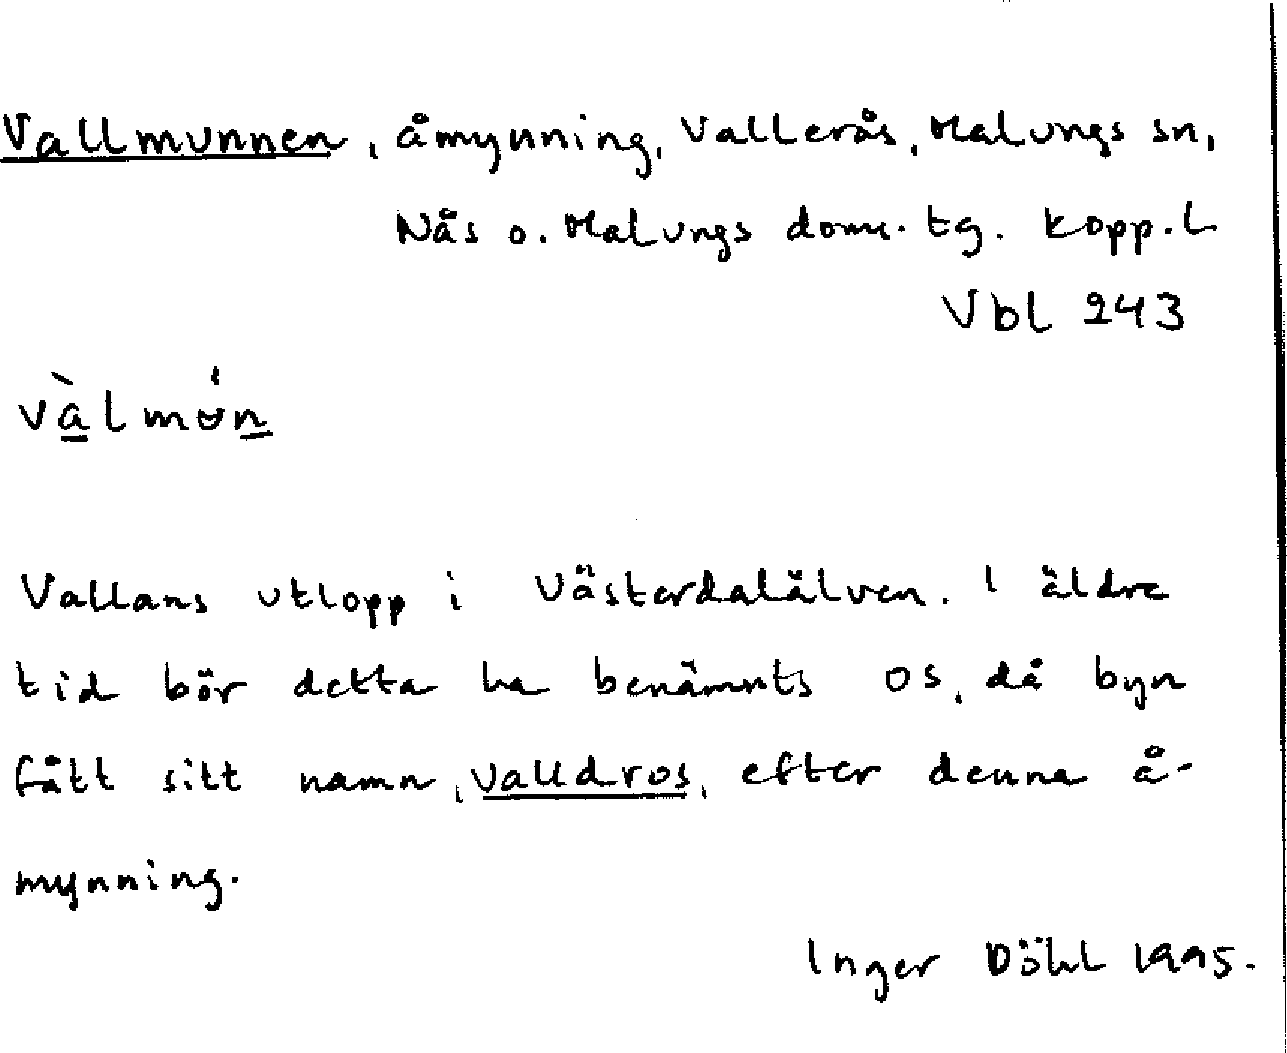 Vallmunnen, åmynning, Vallerås, Malungs sn,
Nås o. Malungs doms. tg. Kopp. L
Vbl 243
Vallans utlopp i Västerdalälven. I äldre
tid bör detta ha benämnts os, då byn
fått sitt namn, Valldros, efter denna å-
mynning.
Inger Döhl 1995.